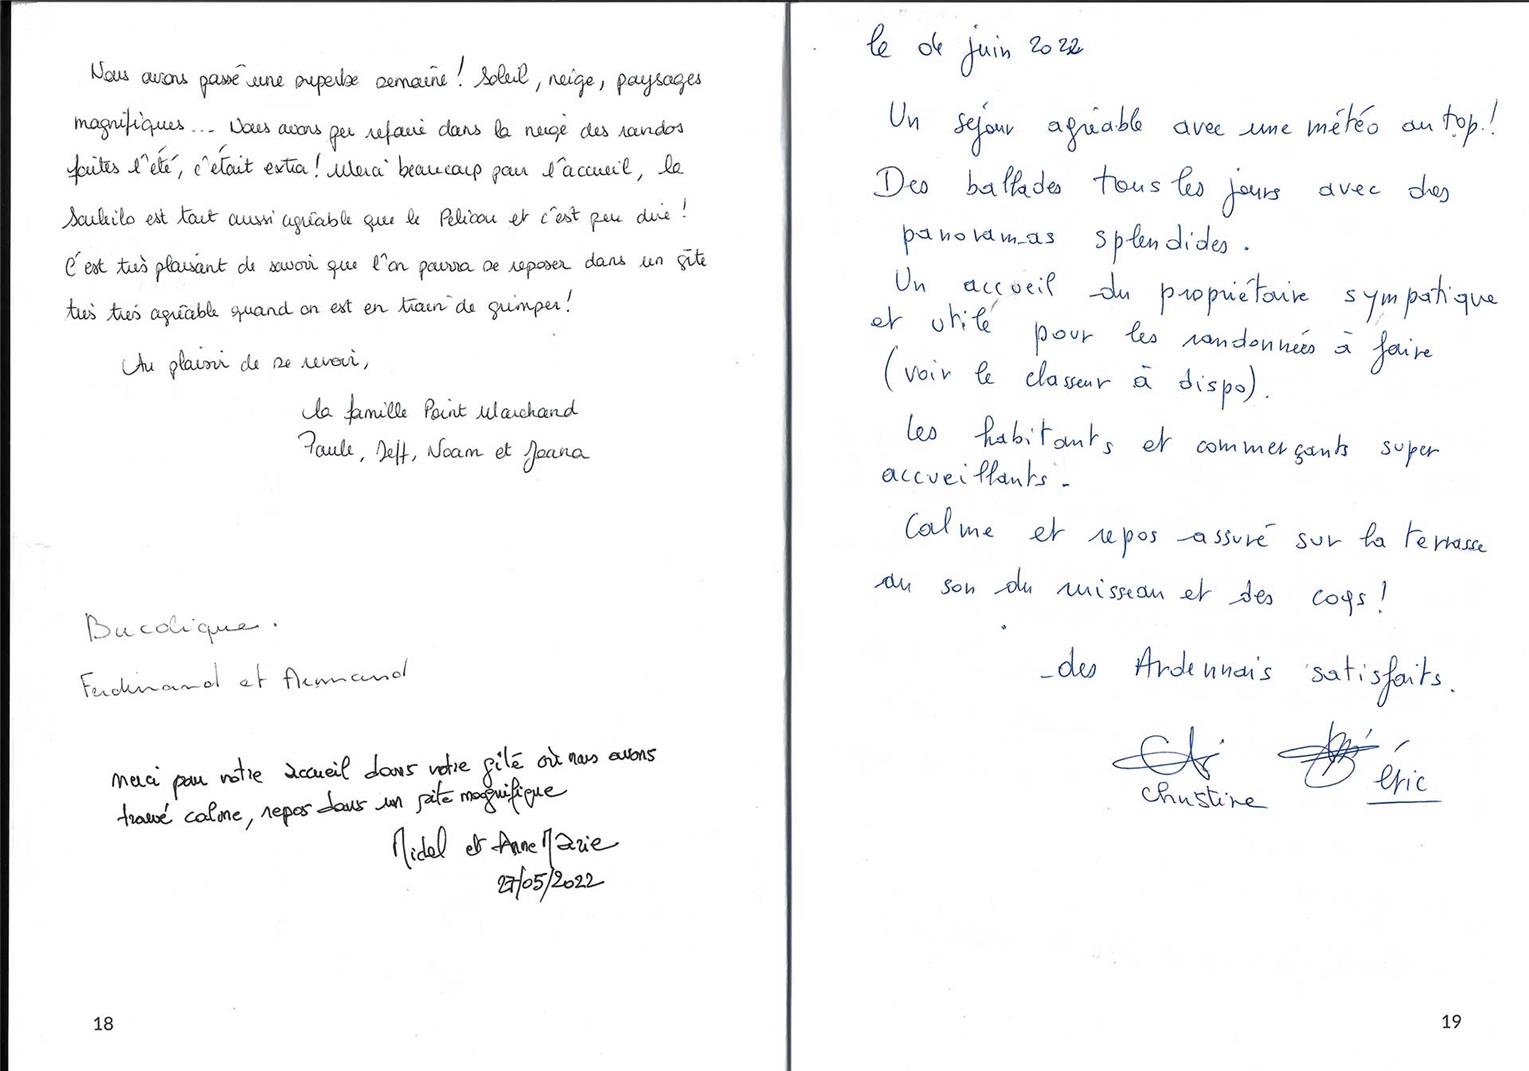 Nous avons passé une superbe semaine ! Soleil, neige, paysages
magnifiques... Nous avons peu refaire dans la neige des randos
faites l'été, c'était extra ! Merci beaucoup pour l'accueil, le
Souhilo est tout aussi agréable que le Pélicou et c'est peu dire !
C'est très plaisant de savoir que l'on pourra se reposer dans un gîte
très très agréable quand on est en train de grimper !
Au plaisir de se revoir,
La famille Point Marchand
Paule, Jeff, Noam et Joana
Bucolique.
Ferdinand et Armand
Merci pour votre accueil dans votre gîte où nous avons
trouvé calme, repos dans un site magnifique
Michel et Anne Marie
27/05/2022
18
le 04 juin 2022
Un séjour agréable avec une météo au top !
Des ballades tous les jours avec des
panoramas splendides.
Un accueil du propriétaire sympatique
et utile pour les randonnées à faire
(voir le classeur à dispo).
Les habitants et commerçants super
accueillants.
Calme et repos assuré sur la terrasse
au son du ruisseau et des coqs !
des Ardennais satisfaits.
Christine
éric
19